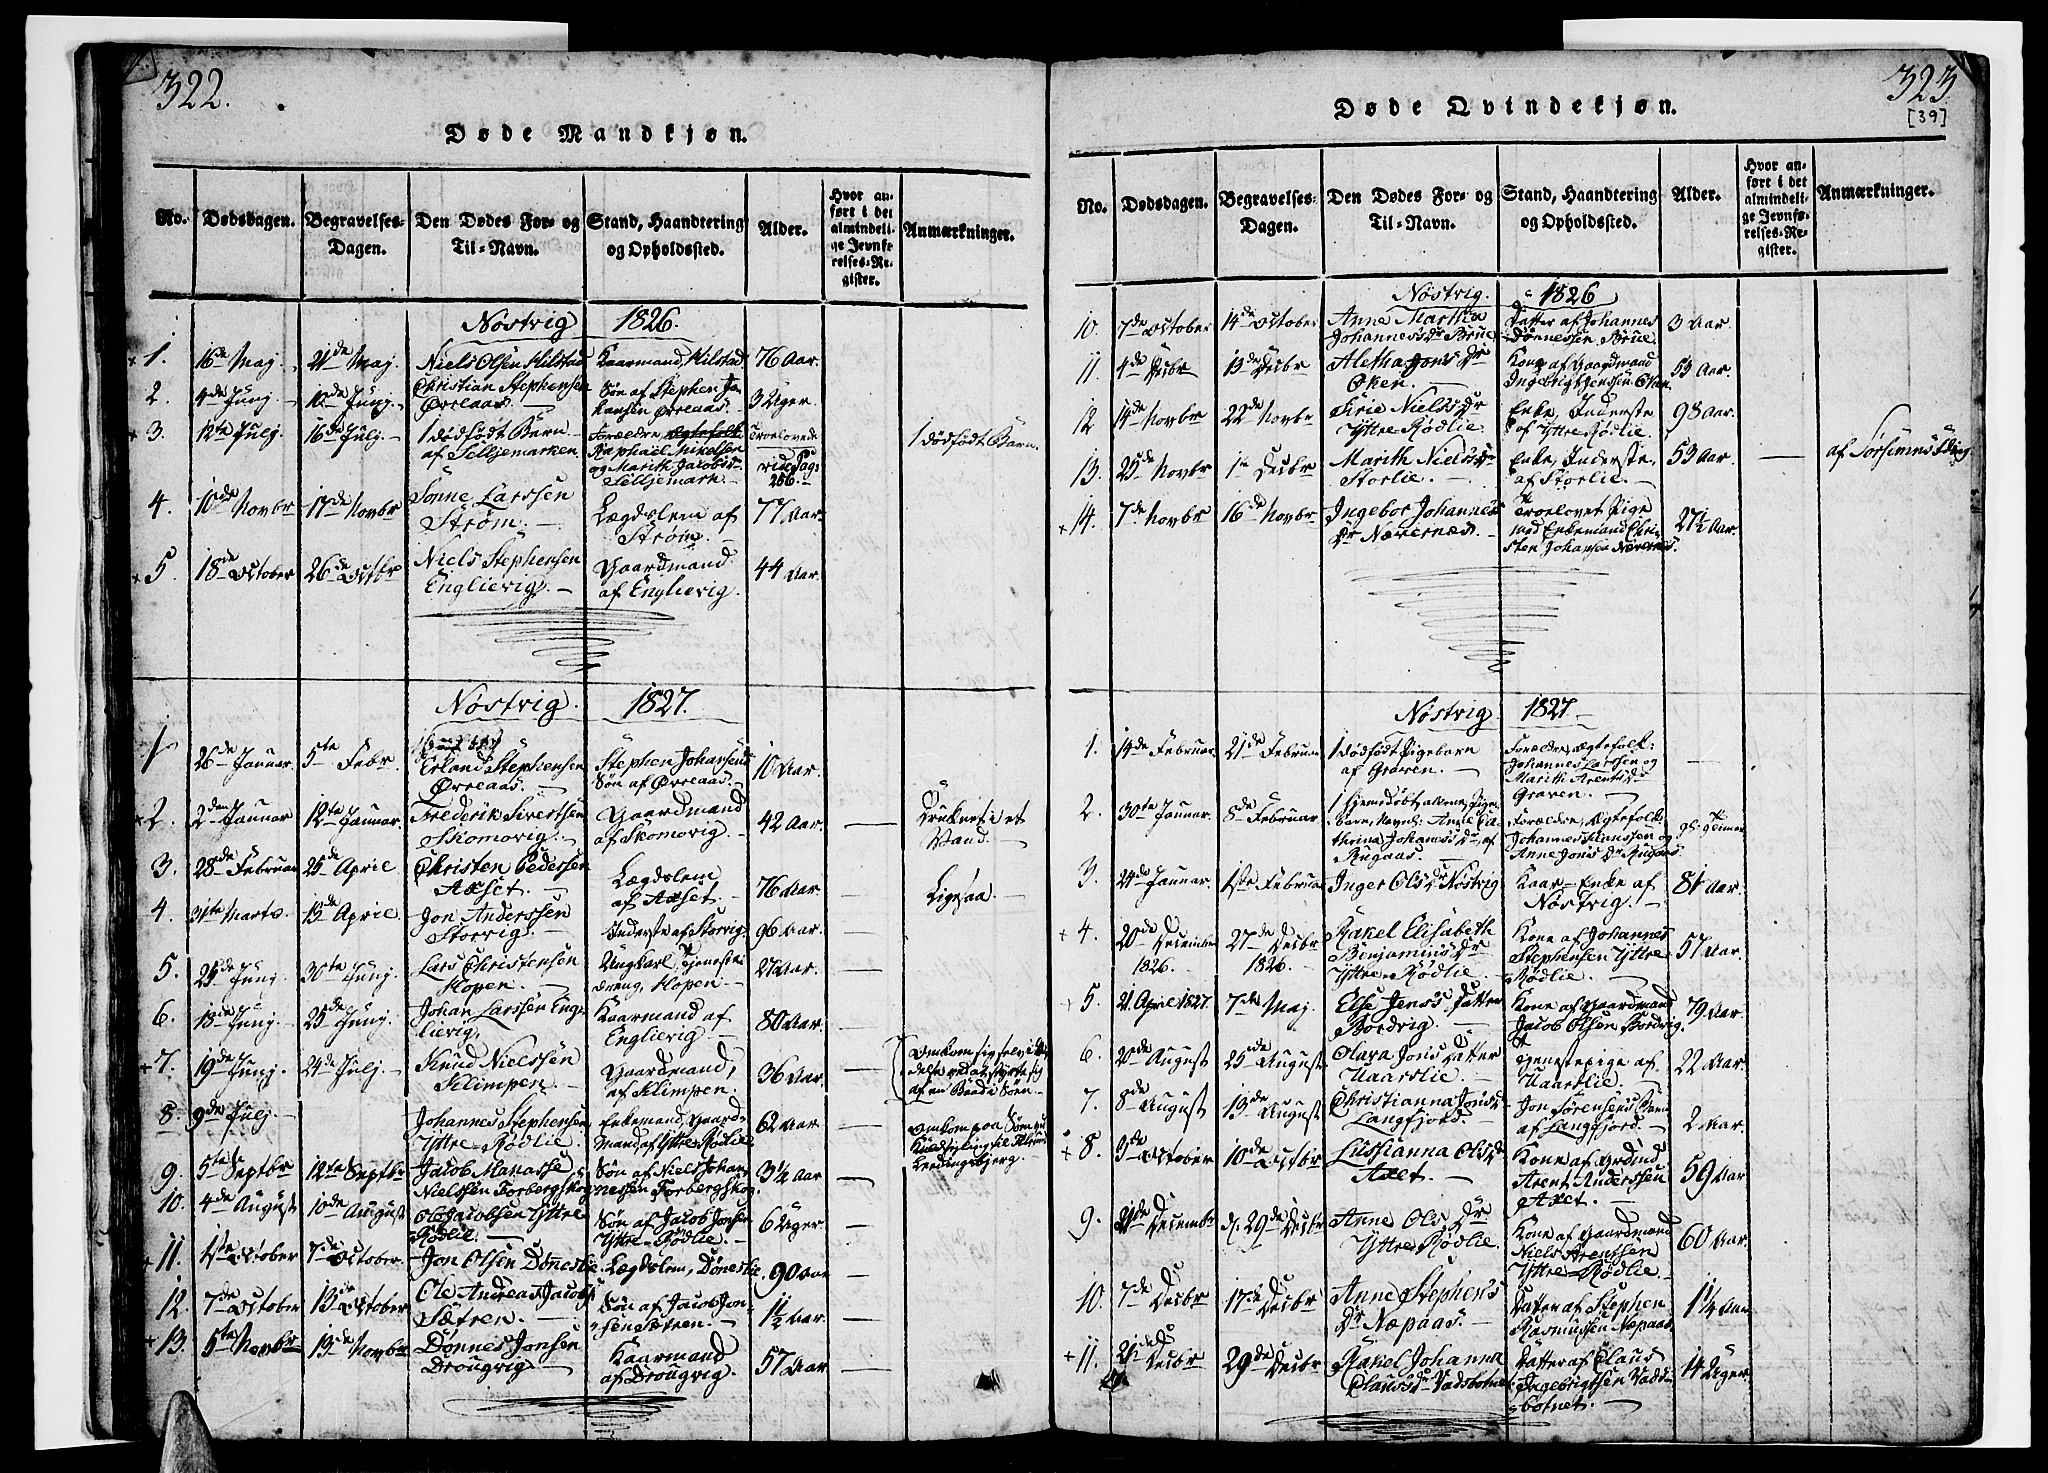 322.
Døde Mandkjøn.
No. Dødsdagen. Begravelses-Dagen. Den Dødes For- og Til-Navn. Stand, Haandtering og Opholdssted. Alder. Hvor anført i det almindelige Jevnførelses-Register. Anmærkninger.
Nøstvig 1826.
+ 1. 16de Maj. 21de Maj. Niels Olsen Hilstad Kaarmand, Hilstad 76 Aar.
2. 4de Junj 10de Junj. Christian Stephensen Øvreaas. Søn af Stephen Johansen Øvreaas. 3 Uger.
+ 3. 12te Julj. 16de Julj. 1 dødfödt Barn af Selljemarken. Forældre Raphael Mikelsen og Marith Jacobsdr Selljemark. 1 dödfödt Barn.
4. 10de Novbr 17de Novbr Sönne Larssen Strøm. Lægdslem af Strøm. 77 Aar.
+ 5. 18de October 26de Octbr Niels Stephensen Englievig. Gaardmand af Englievig. 44 Aar.
Nøstvig. 1827.
1 26de Januar. 5te Febr. Erland Stephensen Øvreaas. Stephen Johansens Søn af Øvreaas. 10 Aar.
+ 2. 2den Januar 12te Januar. Frederik Sivertsen Skomovig. Gaardmand af Skomovig. 42 Aar. Druknet i et Vand.
3. 28de Februar 25de April Christen Pedersen Axset. Lægdslem af Axset. 76 Aar. Ligesaa.
4. 31te Marts. 13de April. Jon Anderssen Storvig. Inderste af Storvig. 96 Aar.
5. 25de Junj 30te Junj. Lars Christensen Hopen. Ungkarl, Tjenestedreng, Hopen. 27 Aar.
6. 18de Junj. 25de Junj. Johan Larssen Englievig. Kaarmand af Englievig. 80 Aar.
+ 7. 19de Junj. 24de Julj. Knud Nielssen Klimpen. Gaardmand, af Klimpen. 36 Aar. Omkom
8. 9de Julj. Johannes Stephensen Yttre Rødlie. Enkemand, Gaardmand, af Yttre Rødlie. 62 Aar. Omkom paa Søen
9. 5te Septbr 12te Septbr Jacob Manasse Nielssen Forbergskog Søn af Niels Johannessen Forbergskog. 3 1/2 Aar
10. 4de August 10de August Ole Jacobsen Yttre Rødlie. Søn af Jacob Jonsen Yttre Rødlie. 6 Uger.
+ 11. 1ste October 7de October. Jon Olsen Døneslie. Lægdslem, Døneslie. 90 Aar
12. 7de October 13de October Ole Andreas Jacobs Sætren. Søn af Jacob Jonsen Sætren. 1 1/2 Aar.
+ 13. 5te Novbr 13de Novbr Dønnes Jonsen Drougvig Kaarmand af Drougvig. 57 Aar
323
[39]
Døde Qvindekjøn.
No. Dødsdagen. Begravelses-Dagen. Den Dødes For- og Til-Navn. Stand, Haandtering og Opholdssted. Alder. Hvor anført i det almindelige Jevnførelses-Register. Anmærkninger.
Nøstvig. 1826
10. 7de October 14de October Anne Martha Johannesdr Brüe. Datter af Johannes Dønnessen Brüe. 3 Aar.
11. 4de Decbr 13de Decbr Aletha Jonsdr Oken. Kone af Gaardmand Ingebrigt Jenssen Oken. 53 Aar.
12 14de Novbr 22de Novbr Sirie Nielsdr Yttre Rødlie. Enke, Inderste af Yttre Rødlie. 98 Aar.
13. 25de Novbr 1ste Decbr Marith Nielsdr Storlie. Enke, Inderste, af Storlie. 53 Aar.
+ 14. 7de Novbr 16de Novbr Ingebor Johannesdr Nævernes. Troelovet Pige med Enkemand Christen Johansen Nævernes. 27 1/2 Aar.
Nøstvig 1827
1. 14de Februar. 21de Februar 1 dødfödt Pigebarn af Graven. Forældre, Ægtefolk: Johannes Larssen og Marith Arentsdr Graven.
2. 30te Januar. 8de Februar 1 hjemmedøbt Pigebarn, Navnl: Anne Cathrina Johannesdr af Rugaas. Forældre, Ægtefolk: Johannes Hanssen og Anne Jonsdr Rugaas
3. 24de Januar. 1ste Februar Inger Olsdr Nøstvig Kaar-Enke af Nøstvig. 81 Aar.
+ 4. 20de December 1826. 27de Decbr 1826. Rakel Elisabeth Benjaminsdr Yttre Rødlie. Kone af Johannes Stephensen Yttre Rødlie. 57 Aar.
+ 5. 21. April 1827 7de Maj. Else Jens Datter Stordvig. Kone af Gaardmand Jacob Olsen Stordvig. 79 Aar.
6. 20de August 25de August Olava Jons Datter Haarslie. Tjenestepige af Haarslie. 22 Aar.
7. 8de August 13de August Christianna Jonsdr Langfjord. Jon Sørensens Barn af Langfjord. 2 Aar.
+ 8. 3de October 10de Octbr Lussianna Olsdr Axet. Kone af Arent Anderssen Axet. 59 Aar
9. 21de December 29de Decbr Anne Olsdr Yttre Rødlie. Kone af Gaardmand Niels Arentsen Yttre Rødlie. 60 Aar.
10. 7de Decbr 17de Decbr Anne Stephensdr Næpaas. Datter af Stephen Rasmussen Næpaas. 1 1/4 Aar
+ 11. 21de Decbr 29de Decbr Rakel Johanna Clausdr Vadsbotnet Datter af Claus Ingebrigtsen Vadsbotnet. 14 Uger